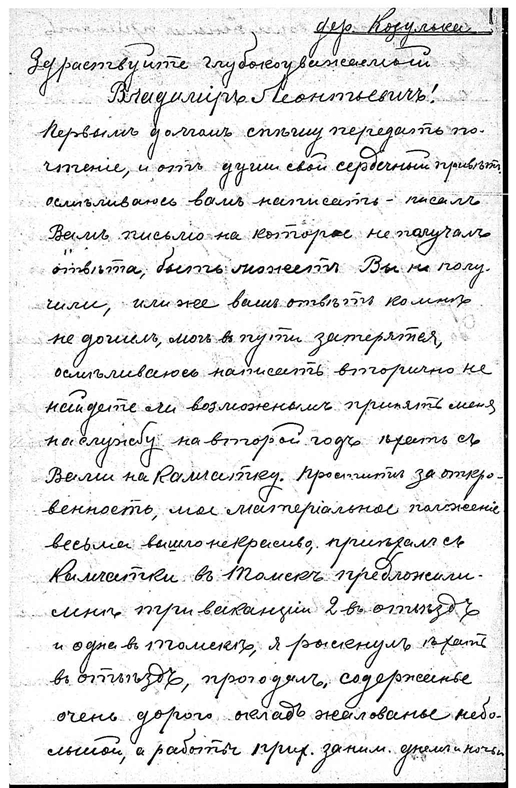 дер. Козулька
Здраствуйте глубокоуважаемый
Владимiръ Леонтьевичъ!
Первымъ долгомъ спѣшу передать по-
чтенiе, и отъ души свой сердечный привѣтъ,
осмѣливаюсь вамъ написать – писалъ
Вамъ письмо на которое не получалъ
отвѣта, быть можетъ Вы не полу-
чили, или же вашъ отвѣтъ ко мнѣ
не дошелъ, могъ в пути затерятся,
осмѣливаюсь написать вторично не
найдете ли возможнымъ принять меня
на службу на второй годъ ѣхать съ
Вами на Камчатку. Простите за откро-
венность, мое матерiальное положенiе
весьма вышло некрасиво. прiѣхалъ съ
Камчатки въ Томскъ предложили-
мнѣ три ваканцiи 2 въ отъѣздъ
и одна въ томскѣ, я рыскнулъ ѣхать
въ отъѣздъ, прогодалъ, содержанье
очень дорого окладъ жалованье небо-
льшой, а работы прих. заним. днемъ и ночью